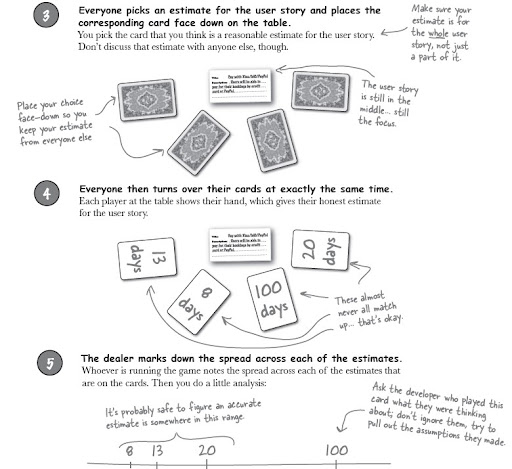 3
Everyone picks an estimate for the user story and places the
corresponding card face down on the table.
You pick the card that you think is a reasonable estimate for the user story.
Don't discuss that estimate with anyone else, though.
Make sure your
estimate is for
the whole user
story, not just
a part of it.
Place your choice
face-down so you
keep your estimate
from everyone else
Title: Pay with Visa/MC/PayPal
Description: Users will be able to
pay for their bookings by credit
card or PayPal.
The user story
is still in the
middle... still
the focus.
4
Everyone then turns over their cards at exactly the same time.
Each player at the table shows their hand, which gives their honest estimate
for the user story.
13
days
Title: Pay with Visa/MC/PayPal
Description: Users will be able to
pay for their bookings by credit
card or PayPal.
20
days
8
days
100
days
These almost
never all match
up... that's okay.
5
The dealer marks down the spread across each of the estimates.
Whoever is running the game notes the spread across each of the estimates that
are on the cards. Then you do a little analysis:
It's probably safe to figure an accurate
estimate is somewhere in this range.
Ask the developer who played this
card what they were thinking
about; don't ignore them, try to
pull out the assumptions they made.
8 13 20 100